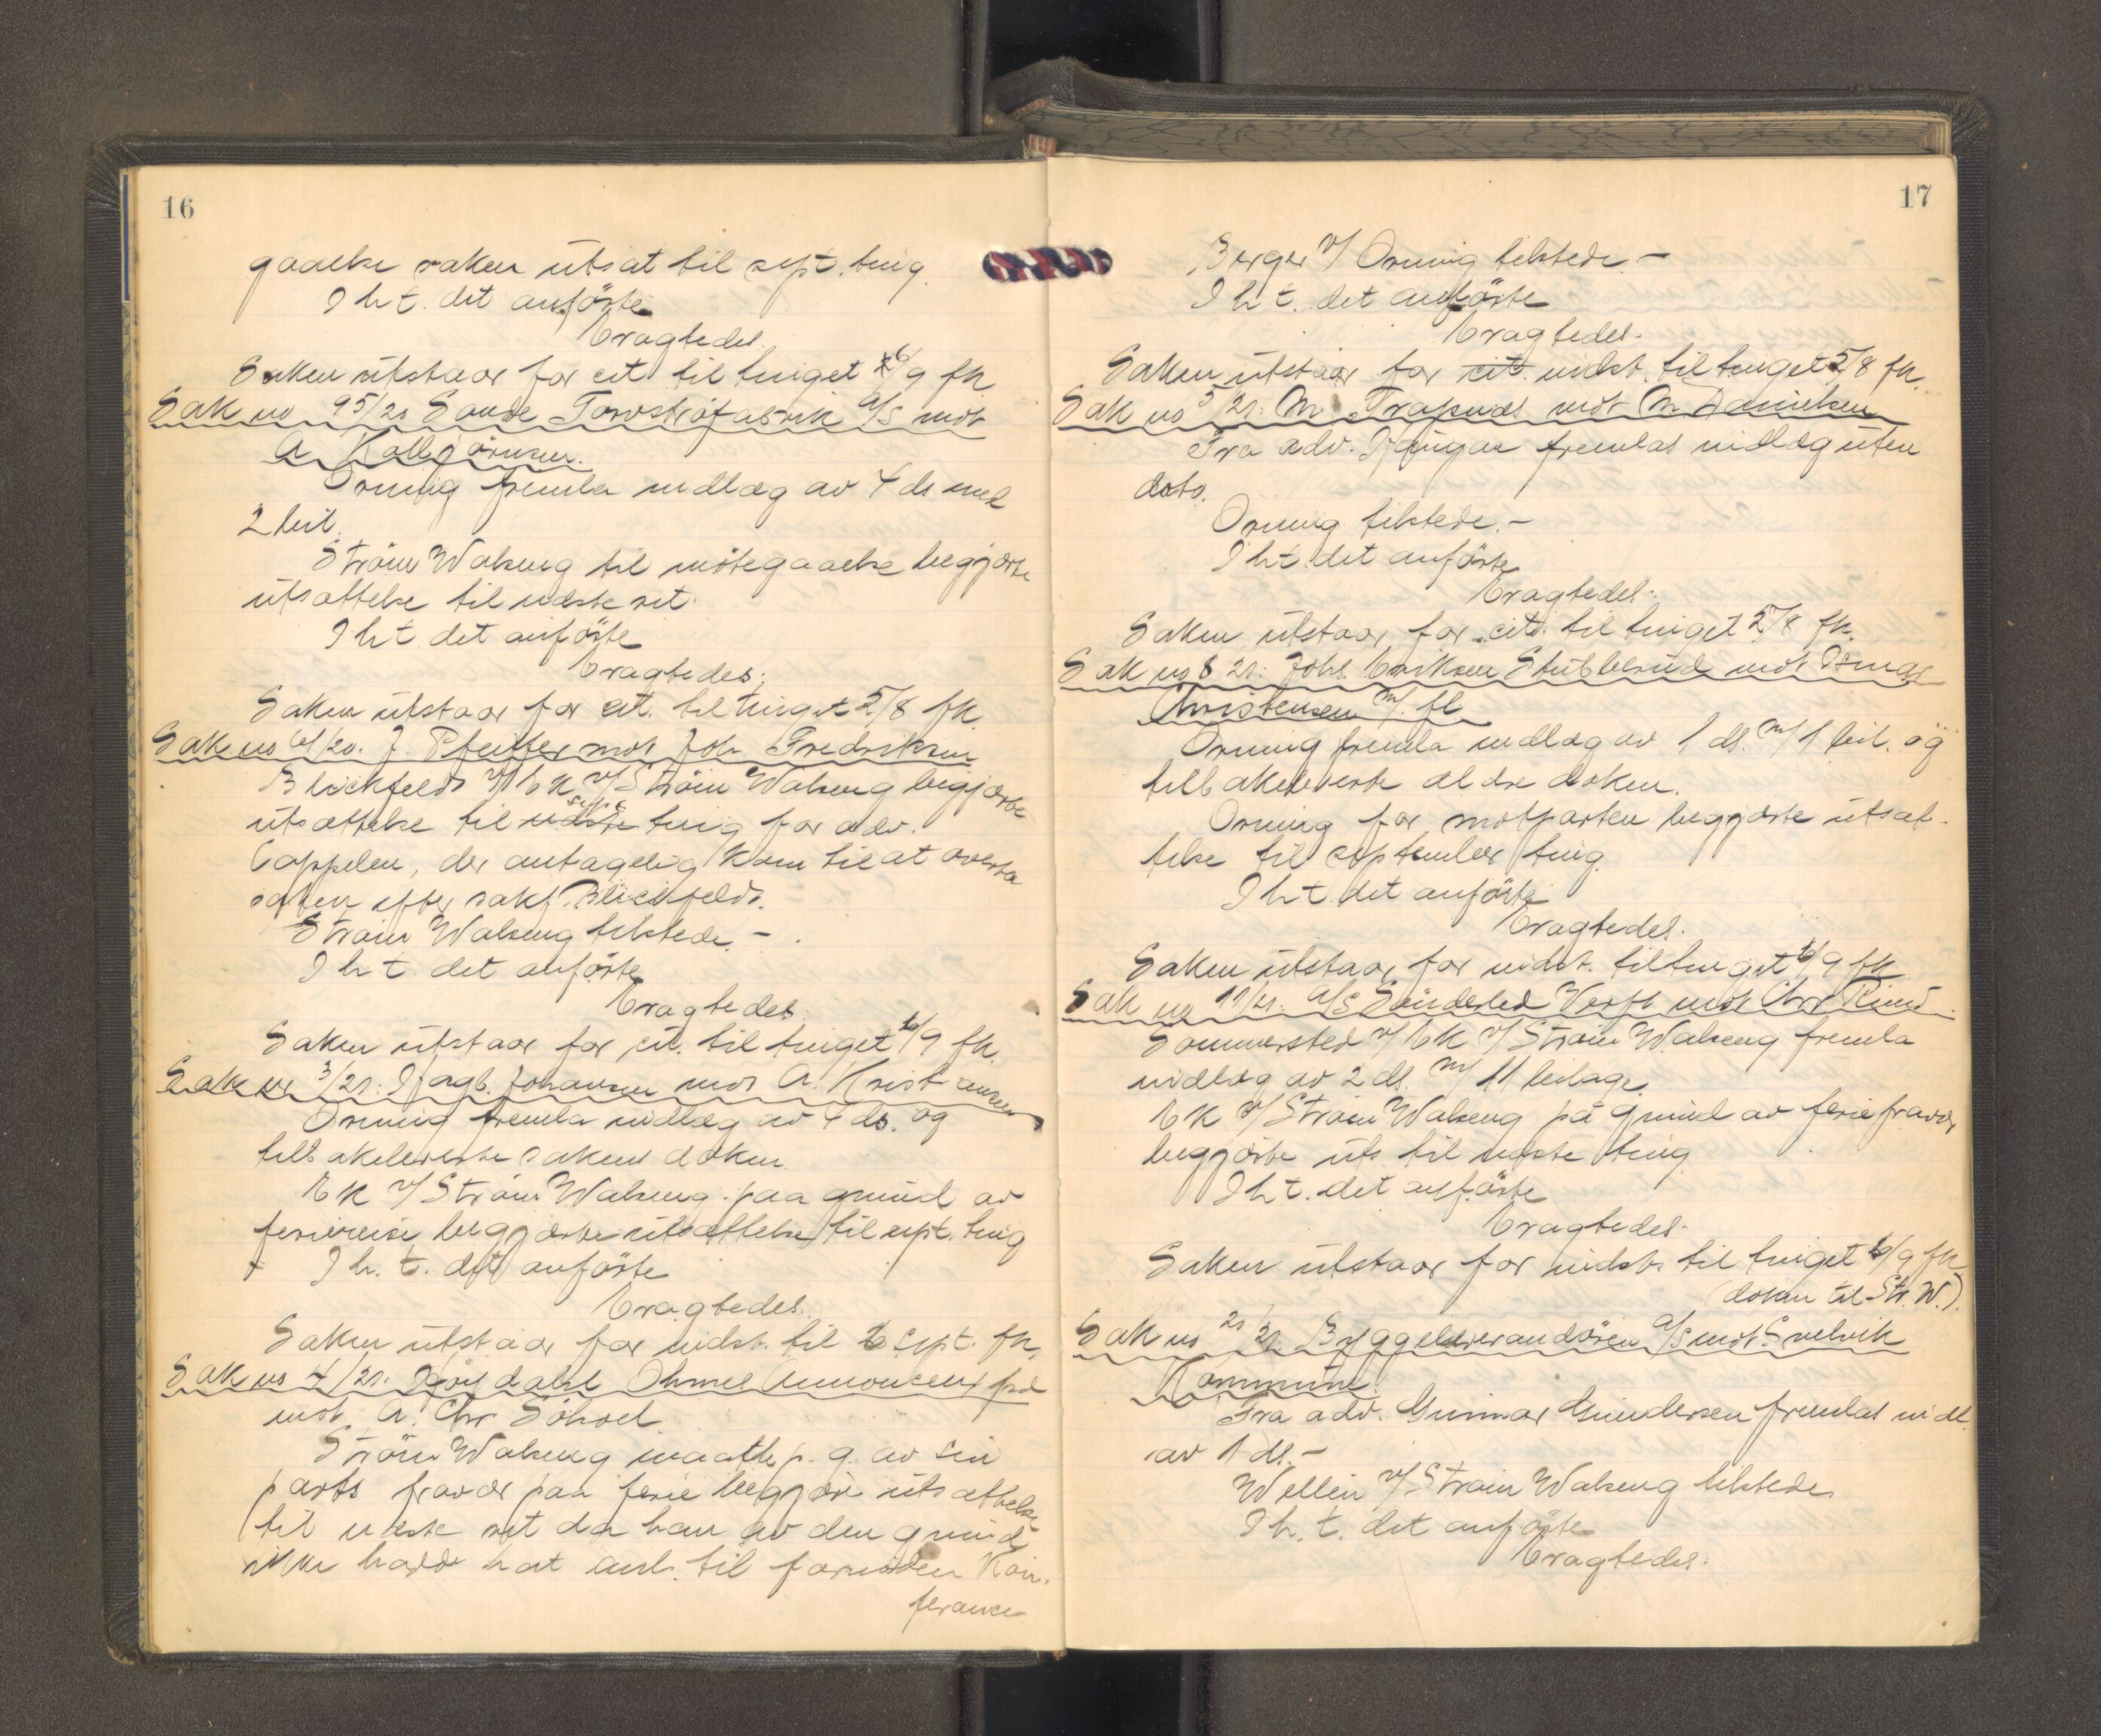 16
gaaelse saken utsat til sept. ting.
I h t. det anførte
Eragtedes.
Saken utstaar for cit til tinget 6/9 fk
Sak no 95/20 Sande Torvstrøfabrik A/S mot
A. Kolbjørnsen.
Orning fremla indlæg av 4 ds med
2 bil.
Strøm Walseng til imøtegaaelse begjærte
utsættelse til næste ret.
I h t det anførte
Eragtedes:
Saken utstaar for cit. til tinget 5/8 fk
Sak no 61/20. J. Pfeiffer mot Joh Fredriksen
Blickfeldt v/ E K v/ Strøm Walseng begjærte
utsættelse til næste sept. ting for adv.
Cappelen, der antagelig kom til at overta
saken efter sakf. Blickfeldt.
Strøm Walseng tilstede. -
I h t. det anførte
Eragtedes.
Saken utstaar for cit. til tinget 6/9 fk.
Sak no 3/21: Hagb. Johansen mot A. Kristiansen
Orning fremla indlæg av 4 ds. og
tilbakeleverte sakens dokum.
E K v/ Strøm Walseng paa grund av
feriereise begjærte utsættelse til sept. ting
I h. t. det anførte
Eragtedes.
Saken utstaar for indst. til 6 sept. fk.
Sak no 4/21. Høydahl Ohmes Annonceexpd
mot A. Chr Sølvoel.
Strøm Walseng maatte p. g. av sin
parts fravær paa ferie begjære utsættelse
til næste ret da han av den grund
ikke hadde hat anl. til fornøden kon-
ferance
17
Berger v/ Orning tilstede. -
I h t. det anførte
Eragtedes.
Saken utstaar for cit. indst. til tinget 5/8 fk.
Sak no 5/21. M. Trapnes mot M Danielsen
Fra adv. Haugan fremlas indlæg uten
dato.
Orning tilstede. -
I h t. det anførte
Eragtedes.
Saken utstaar for cit. til tinget 5/8 fk.
Sak no 8 21: Johs. Eriksen Stubberud mot
Christensen m/ fl
Orning fremla indlæg av 1 ds. m/ 1 bil. og
tilbakeleverte ældre dokum.
Orning for motparten begjærte utsæt-
telse til september ting.
I h t. det anførte
Eragtedes.
Saken utstaar for indst. til tinget 6/9 fk
Sak no 11/21. A/S Søndeled Verft mot Chr Rund.
Sommersted v/ E K v/ Strøm Walseng fremla
indlæg av 2 ds. m/ 11 bilage.
E K v/ Strøm Walseng på grund av feriefravær
begjærte uts til næste ting.
I h t. det anførte
Eragtedes.
Saken utstaar for indst. til tinget 6/9 fk
(dokum til Str. W.).
Sak no 21/21. Byggeleverandøren A/S mot Svelvik
Kommune.
Fra adv. Gunnar Gundersen fremlas indl.
av 1 ds. -
Wellén v/ Strøm Walseng tilstede
I h. t. det anførte
Eragtedes.